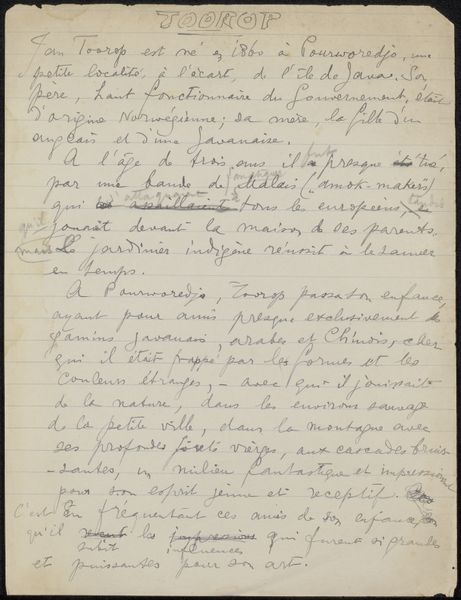 TOOROP
Jan Toorop est né en 1860 à Pourworedjo, une
petite localité, à l'écart, de l'île de Java. Son
père, haut fonctionnaire du Gouvernement, était
d'origine Norwégienne; sa mère, la fille d'un
anglais et d'une Javanaise.
A l'âge de trois ans il fut presque été tué,
par une bande de Malais (amok-makers)
qui attaquaient assaillaient tous les européens,
qu'il jouait devant la maison de ses parents.
mais le jardinier indigène réussit à le sauver
en temps.
A Pourworedjo, Toorop passa son enfance,
ayant pour amis presque exclusivement de
gamins javanais, arabes et Chinois, chez
qui il était frappé par les formes et les
couleurs étranges, – avec qui il jouissait
de la nature, dans les environs sauvages
de la petite ville, dans la montagne avec
ses profondes forêts vierges, aux cascades bruis-
santes, un milieu fantastique et impressionnant
pour son esprit jeune et receptif.
C'est en frequentant ces amis de son enfance,
qu'il subit les impressions influences qui furent si grandes
et puissantes pour son art.